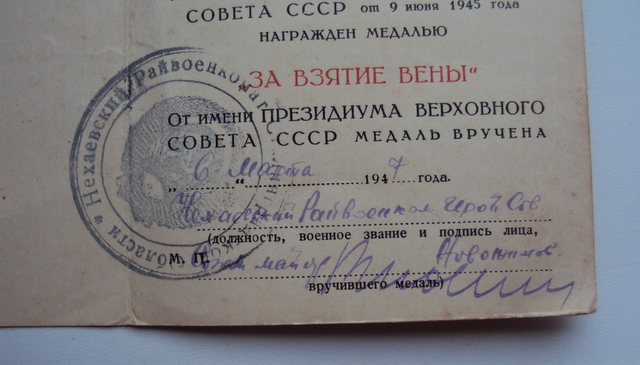 СОВЕТА СССР от 9 июня 1945 года
НАГРАЖДЕН МЕДАЛЬЮ
„ЗА ВЗЯТИЕ ВЕНЫ“
От имени ПРЕЗИДИУМА ВЕРХОВНОГО
СОВЕТА СССР МЕДАЛЬ ВРУЧЕНА
„6“ Марта 1947 года.
Нехаевский Райвоенком
(должность, военное звание и подпись лица,
М. П. майор
вручившего медаль)
Нехаевский Райвоенкомат
области